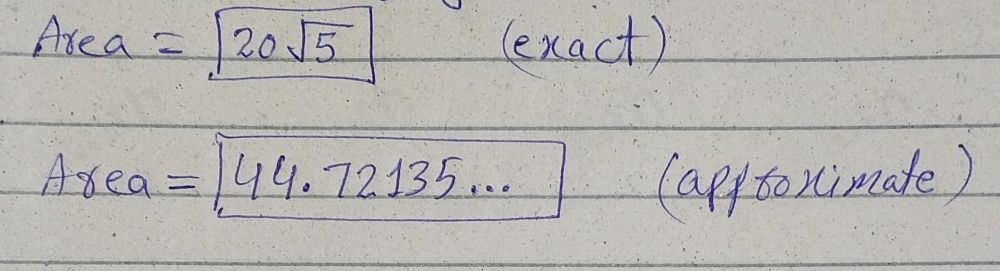 Area = 20√5 (exact)
Area = 44.72135... (approximate)